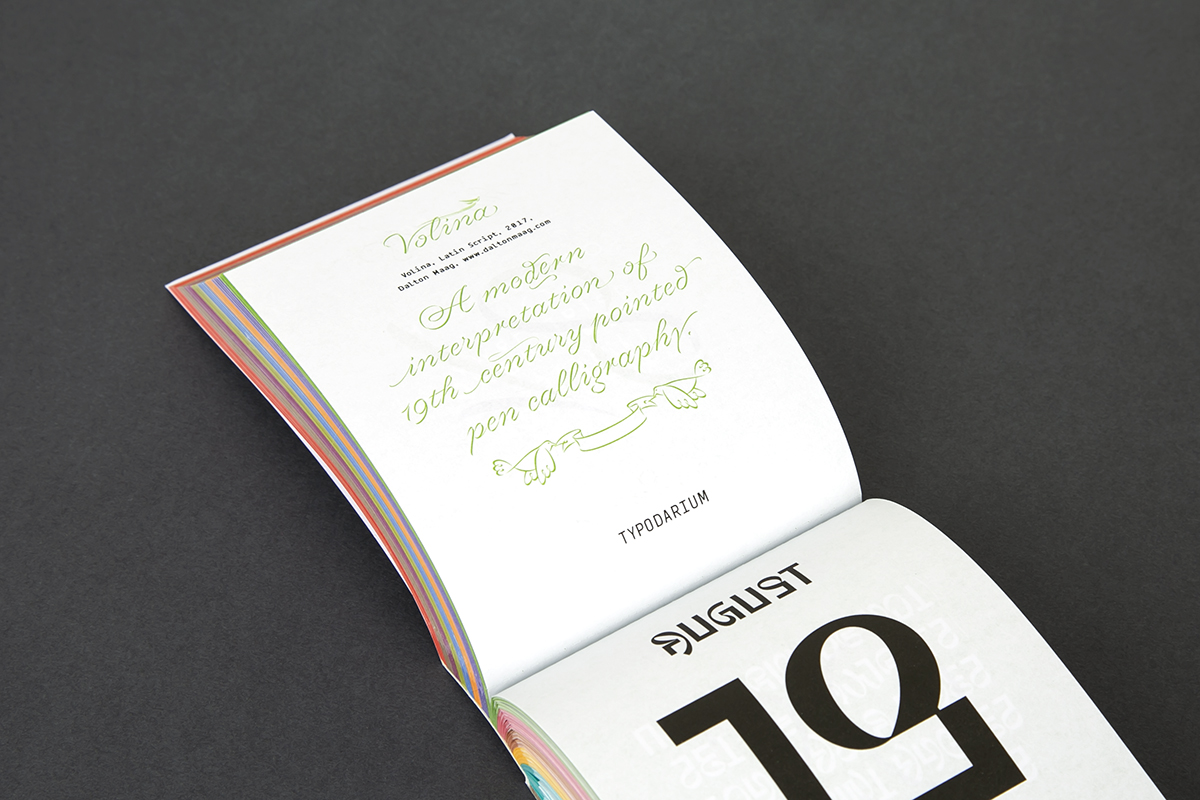 Volina
Volina, Latin Script, 2017,
Dalton Maag, www.daltonmaag.com
A modern
interpretation of
19th century pointed
pen calligraphy.
TYPODARIUM
AUGUST
19